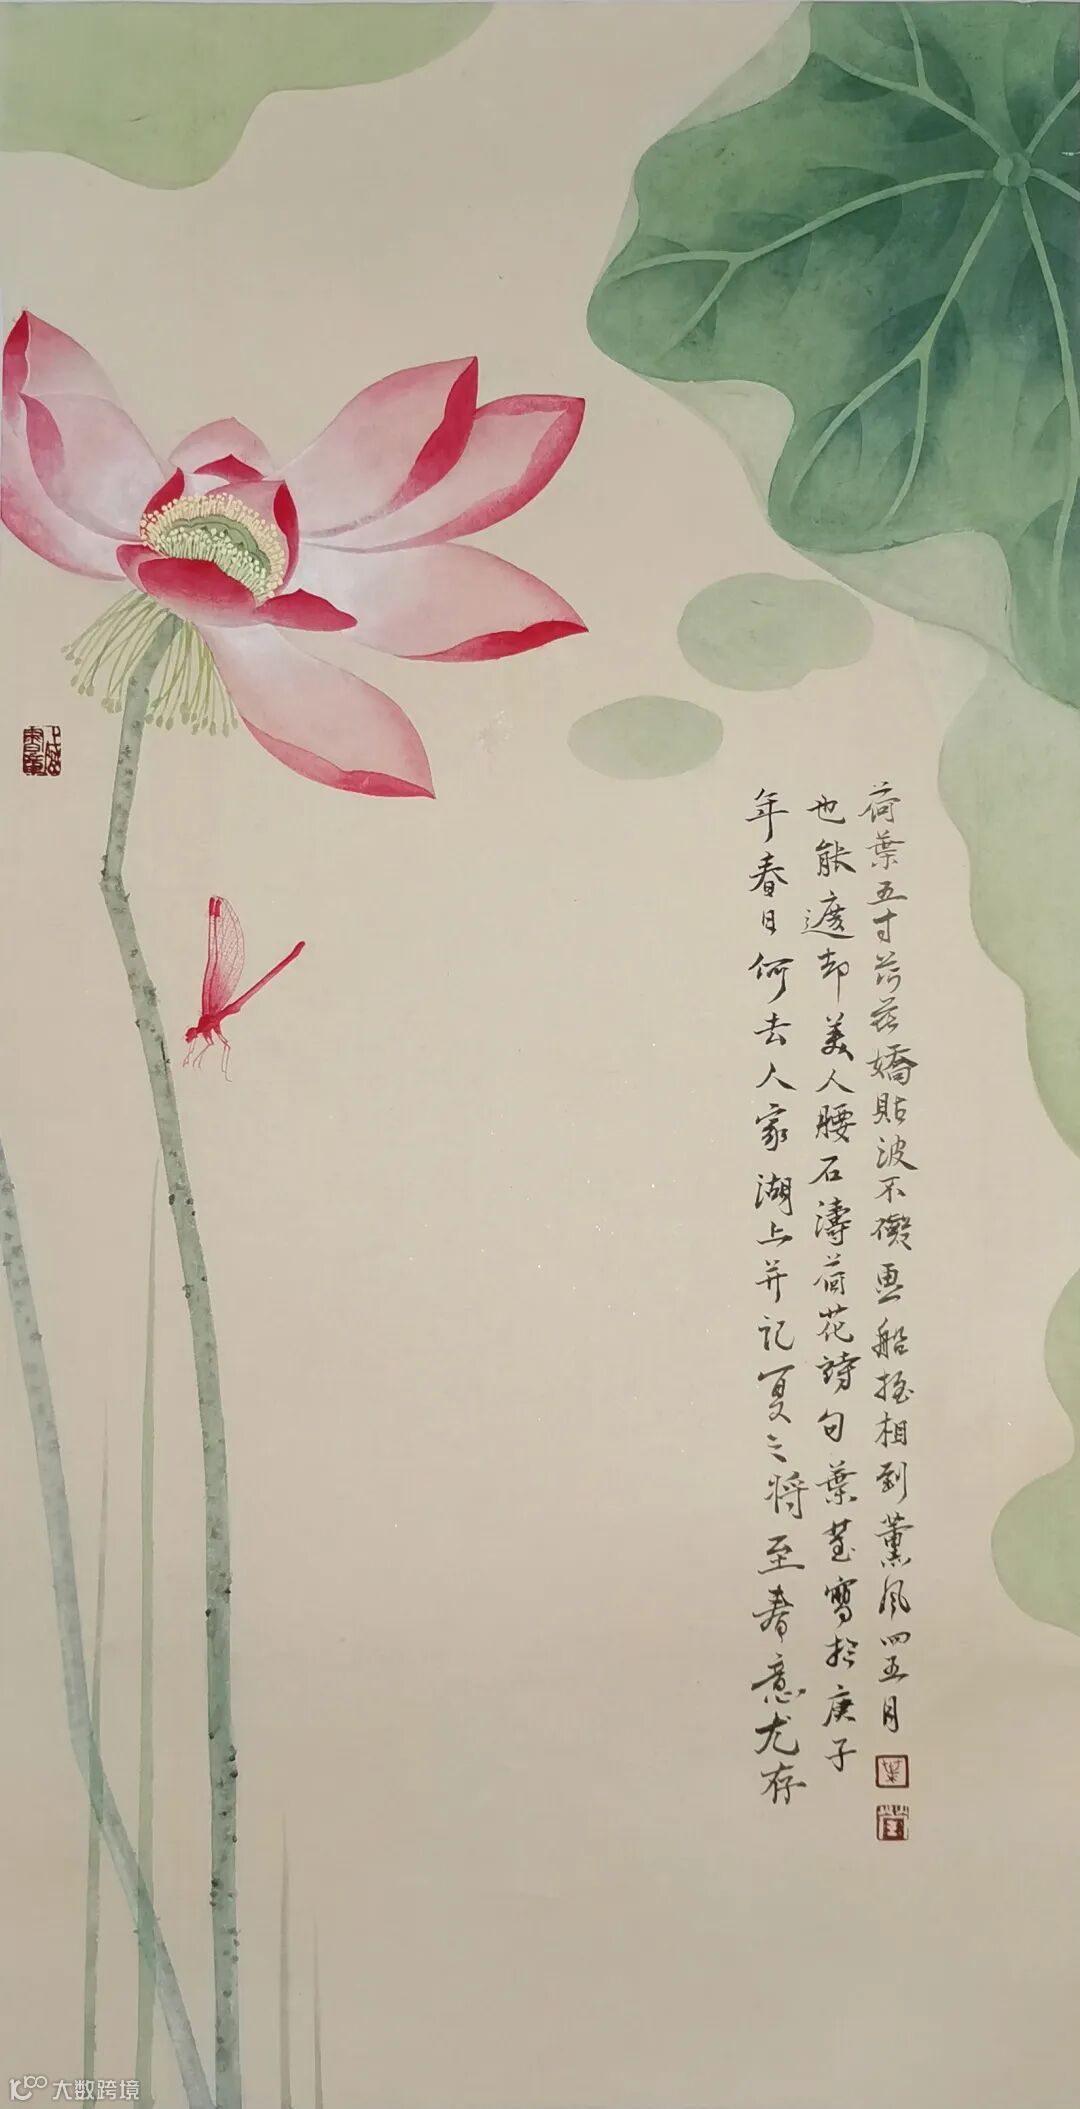 荷葉五寸荷花嬌貼波不礙画船摇相到薰風四五月
也能遮却美人腰石濤荷花詩句葉寫於庚子
年春日何去人家湖上并记夏之将至春意尤存
葉
大数跨境